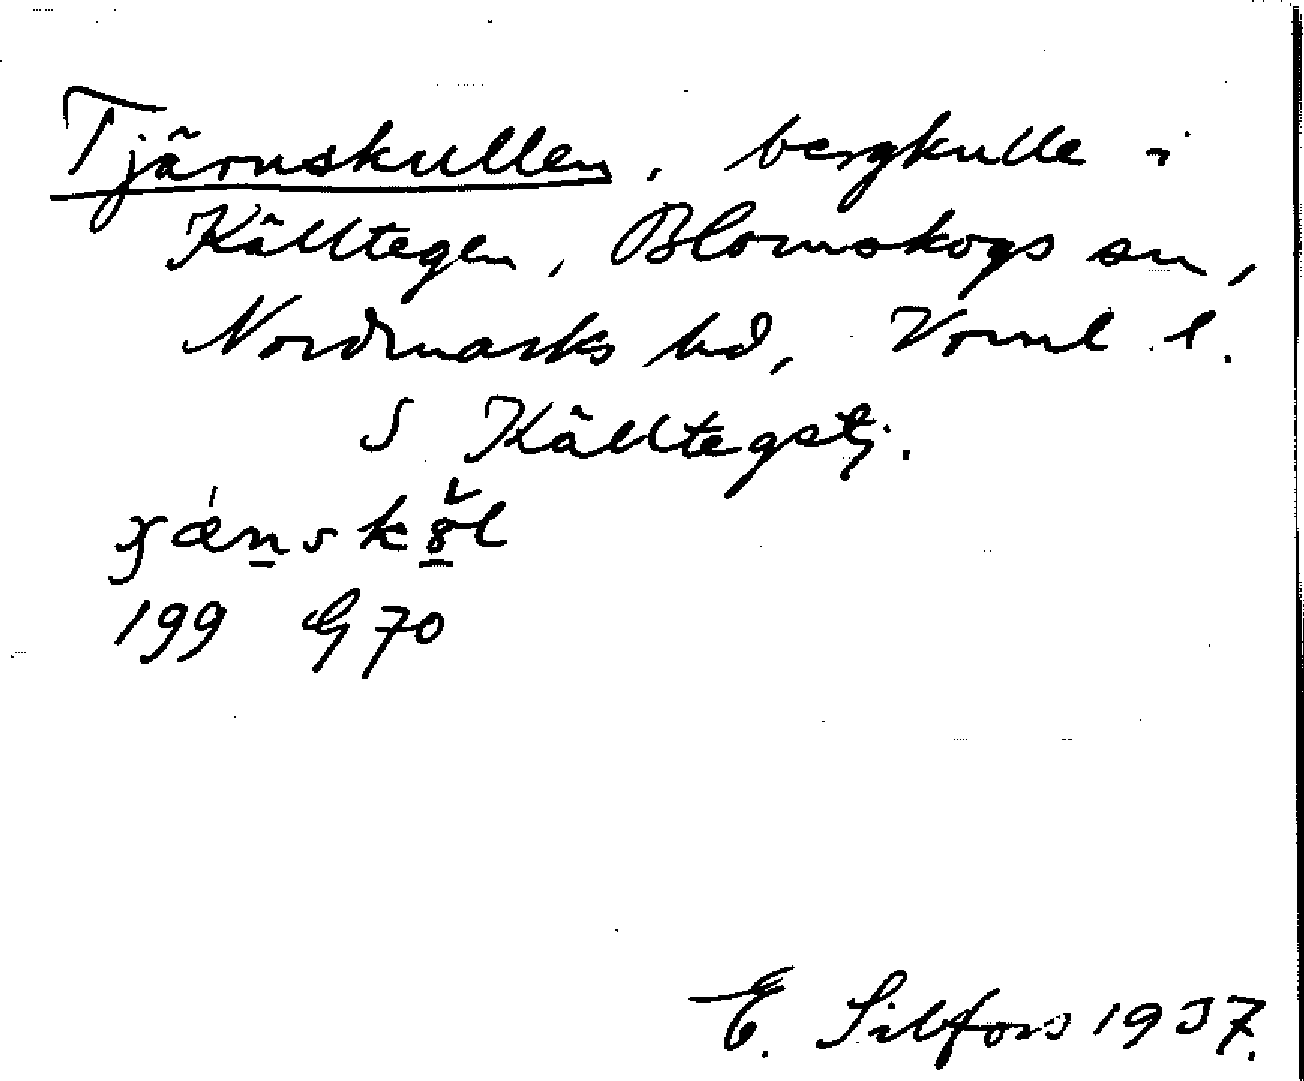 Tjärnskullen, bergkulle i
Källtegen, Blomskogs sn,
Nordmarks hd, Värml l.
S Källtegstj.
199 G 70
E. Silfors 1937.